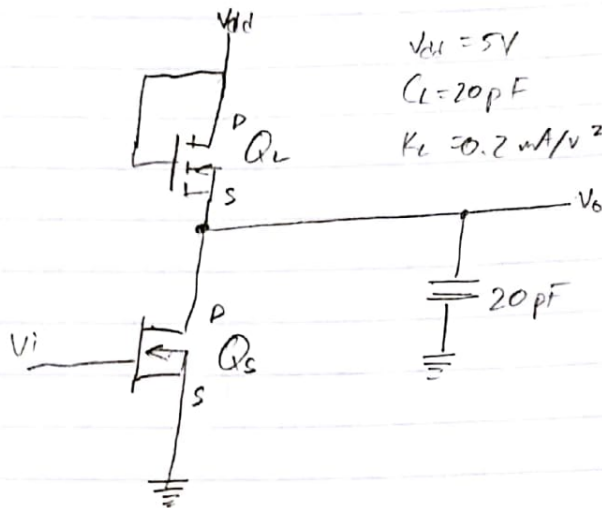 Vdd
Vdd = 5V
CL = 20pF
KL = 0.2 mA/V²
D
QL
S
Vo
20pF
D
Vi
Qs
S